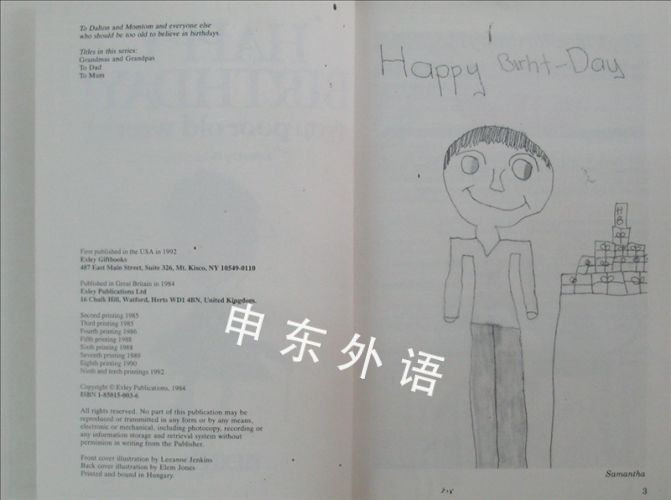 To Dalton and Momtom and everyone else
who should be too old to believe in birthdays.
Titles in this series:
Grandmas and Grandpas
To Dad
To Mum
First published in the USA in 1992
Exley Giftbooks
487 East Main Street, Suite 326, Mt. Kisco, NY 10549-0110
Published in Great Britain in 1984
Exley Publications Ltd
16 Chalk Hill, Watford, Herts WD1 4BN, United Kingdom.
Second printing 1985
Third printing 1985
Fourth printing 1986
Fifth printing 1988
Sixth printing 1988
Seventh printing 1989
Eighth printing 1990
Ninth and tenth printings 1992
Copyright © Exley Publications, 1984
ISBN 1-85015-003-6
All rights reserved. No part of this publication may be
reproduced or transmitted in any form or by any means,
electronic or mechanical, including photocopy, recording or
any information storage and retrieval system without
permission in writing from the Publisher.
Front cover illustration by Lezanne Jenkins
Back cover illustration by Elem Jones
Printed and bound in Hungary.
Happy Birht-Day
H
B
Samantha
3
申东外语